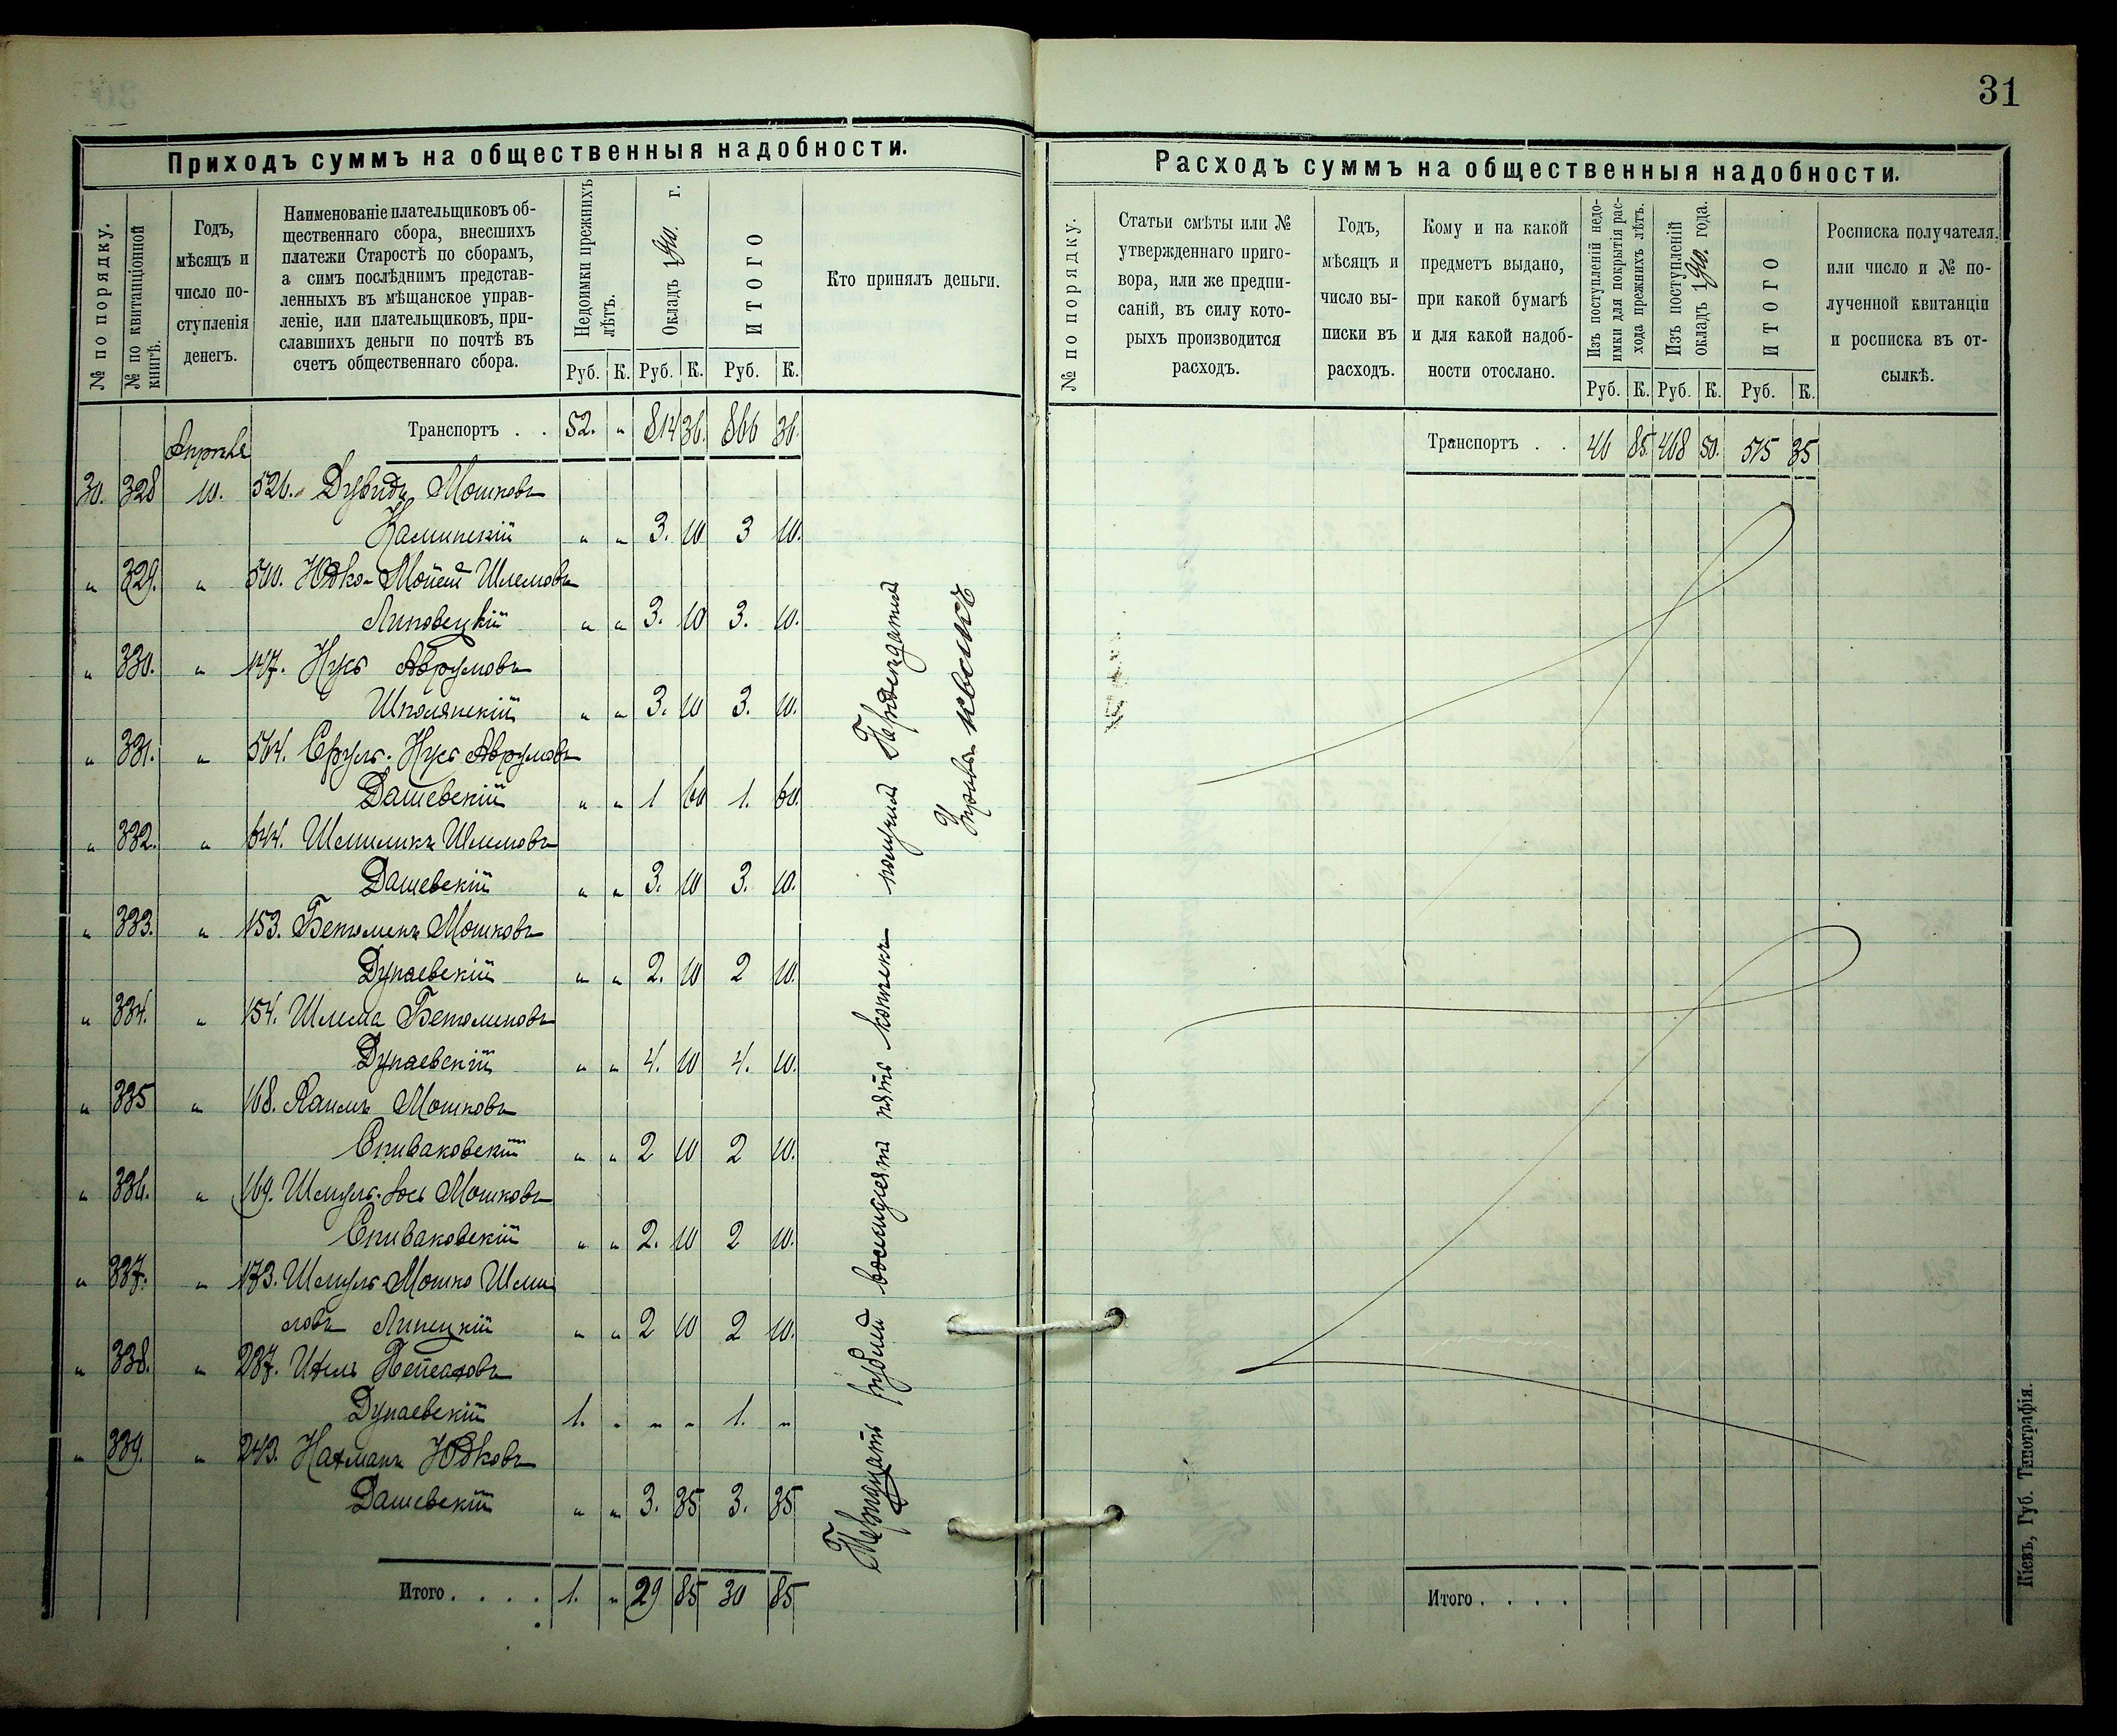 31
Приходъ суммъ на общественныя надобности.
№ по порядку.
№ по квитанціонной книгѣ.
Годъ,
мѣсяцъ и
число по-
ступленія
денегъ.
Наименованіе плательщиковъ об-
щественнаго сбора, внесшихъ
платежи Старостѣ по сборамъ,
а симъ послѣднимъ представ-
ленныхъ въ мѣщанское управ-
леніе, или плательщиковъ, при-
славшихъ деньги по почтѣ въ
счетъ общественнаго сбора.
Недоимки прежнихъ
лѣтъ.
Окладъ 1910. г.
ИТОГО
Кто принялъ деньги.
Руб. К. Руб. К. Руб. К.
Транспортъ . . 52. „ 814 36. 866 36.
Апрѣля
30. 328 10. 526. Дувидъ Мошковъ
Каминскій „ „ 3. 10 3 10.
„ 329. „ 500. Юдко-Мойсей Шлемовъ
Липовецкій „ „ 3. 10 3. 10.
„ 330. „ 147. Нусъ Аврумовъ
Шполянскій „ „ 3. 10 3. 10.
„ 331. „ 564. Сруль-Нусъ Аврумовъ
Дашевскій „ „ 1 60 1. 60.
„ 332. „ 644. Шмиликъ Шлемовъ
Дашевскій „ „ 3. 10 3. 10.
„ 333. „ 153. Мошковъ
Дунаевскій „ „ 2. 10 2 10.
„ 334. „ 154. Шлема
Дунаевскій „ „ 4. 10 4. 10.
„ 335 „ 168. Мошковъ
Спиваковскій „ „ 2 10 2 10.
„ 336. „ 169. Шмуль-Іось Мошковъ
Спиваковскій „ „ 2. 10 2 10.
„ 337. „ 173. Шмуль-Мошко Шми
ловъ Липецкій „ „ 2 10 2 10.
„ 338. „ 237. Ицель Пейсаховъ
Дунаевскій 1. „ „ „ 1. „
„ 339. „ 243. Нахманъ Юдковъ
Дашевскій „ „ 3. 35 3. 35
Итого . . . . 1. „ 29 85 30 85
Тридцать рублей восемдесятъ пять копѣекъ получилъ
Расходъ суммъ на общественныя надобности.
№ по порядку.
Статьи смѣты или №
утвержденнаго приго-
вора, или же предпи-
саній, въ силу кото-
рыхъ производится
расходъ.
Годъ,
мѣсяцъ и
число вы-
писки въ
расходъ.
Кому и на какой
предметъ выдано,
при какой бумагѣ
и для какой надоб-
ности отослано.
Изъ поступленій недо-
имки для покрытія рас-
хода прежнихъ лѣтъ.
Изъ поступленій
окладъ 1910. года.
ИТОГО
Росписка получателя
или число и № по-
лученной квитанціи
и росписка въ от-
сылкѣ.
Руб. К. Руб. К. Руб. К.
Транспортъ . . 46 85. 468 50. 515 35
Итого . . . .
Кіевъ, Губ. Типографія.